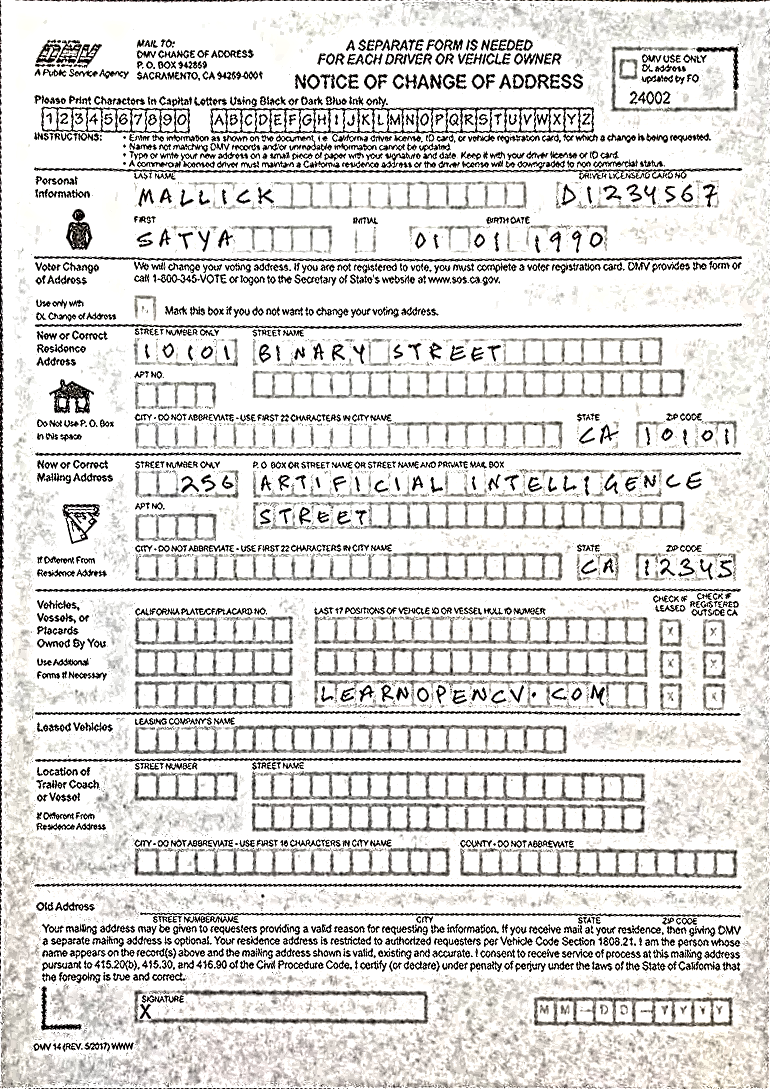 DMV
A Public Service Agency
MAIL TO:
DMV CHANGE OF ADDRESS
P. O. BOX 942859
SACRAMENTO, CA 94259-0001
A SEPARATE FORM IS NEEDED
FOR EACH DRIVER OR VEHICLE OWNER
NOTICE OF CHANGE OF ADDRESS
DMV USE ONLY
DL address
updated by FO
24002
Please Print Characters In Capital Letters Using Black or Dark Blue Ink only.
1234567890 ABCDEFGHIJKLMNOPQRSTUVWXYZ
INSTRUCTIONS:
• Enter the information as shown on the document, i.e. California driver license, ID card, or vehicle registration card, for which a change is being requested.
• Names not matching DMV records and/or unreadable information cannot be updated.
• Type or write your new address on a small piece of paper with your signature and date. Keep it with your driver license or ID card.
• A commercial licensed driver must maintain a California residence address or the driver license will be downgraded to non commercial status.
Personal
Information
LAST NAME
MALLICK
DRIVER LICENSE/ID CARD NO
D1234567
FIRST
SATYA
INITIAL
BIRTH DATE
01 01 1990
Voter Change
of Address
We will change your voting address. If you are not registered to vote, you must complete a voter registration card. DMV provides the form or
call 1-800-345-VOTE or logon to the Secretary of State's website at www.sos.ca.gov.
Use only with
DL Change of Address
Mark this box if you do not want to change your voting address.
New or Correct
Residence
Address
STREET NUMBER ONLY
10101
STREET NAME
BINARY STREET
APT NO.
Do Not Use P. O. Box
in this space
CITY - DO NOT ABBREVIATE - USE FIRST 22 CHARACTERS IN CITY NAME
STATE
CA
ZIP CODE
10101
New or Correct
Mailing Address
STREET NUMBER ONLY
256
P. O BOX OR STREET NAME OR STREET NAME AND PRIVATE MAIL BOX
ARTIFICIAL INTELLIGENCE
APT NO.
STREET
If Different From
Residence Address
CITY - DO NOT ABBREVIATE - USE FIRST 22 CHARACTERS IN CITY NAME
STATE
CA
ZIP CODE
12345
Vehicles,
Vessels, or
Placards
Owned By You
Use Additional
Forms If Necessary
CALIFORNIA PLATE/CF/PLACARD NO.
LAST 17 POSITIONS OF VEHICLE ID OR VESSEL HULL ID NUMBER
CHECK IF
LEASED
CHECK IF
REGISTERED
OUTSIDE CA
X X
X X
LEARNOPENCV.COM
X X
Leased Vehicles
LEASING COMPANY'S NAME
Location of
Trailer Coach
or Vessel
If Different From
Residence Address
STREET NUMBER
STREET NAME
CITY - DO NOT ABBREVIATE - USE FIRST 16 CHARACTERS IN CITY NAME
COUNTY - DO NOT ABBREVIATE
Old Address
STREET NUMBER/NAME
CITY
STATE
ZIP CODE
Your mailing address may be given to requesters providing a valid reason for requesting the information. If you receive mail at your residence, then giving DMV
a separate mailing address is optional. Your residence address is restricted to authorized requesters per Vehicle Code Section 1808.21. I am the person whose
name appears on the record(s) above and the mailing address shown is valid, existing and accurate. I consent to receive service of process at this mailing address
pursuant to 415.20(b), 415.30, and 416.90 of the Civil Procedure Code. I certify (or declare) under penalty of perjury under the laws of the State of California that
the foregoing is true and correct.
SIGNATURE
X
MM-DD-YYYY
DMV 14 (REV. 5/2017) WWW